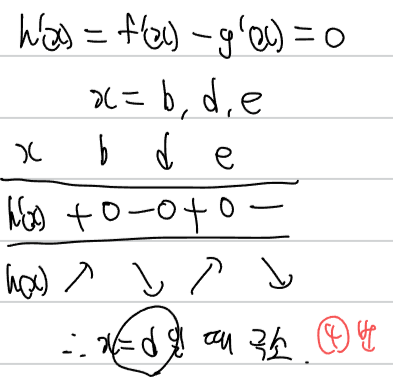 h'(x) = f'(x) - g'(x) = 0
x = b, d, e
x b d e
h'(x) + 0 - 0 + 0 -
h(x) ↗ ↘ ↗ ↘
∴ x = d일 때 극소. ④번